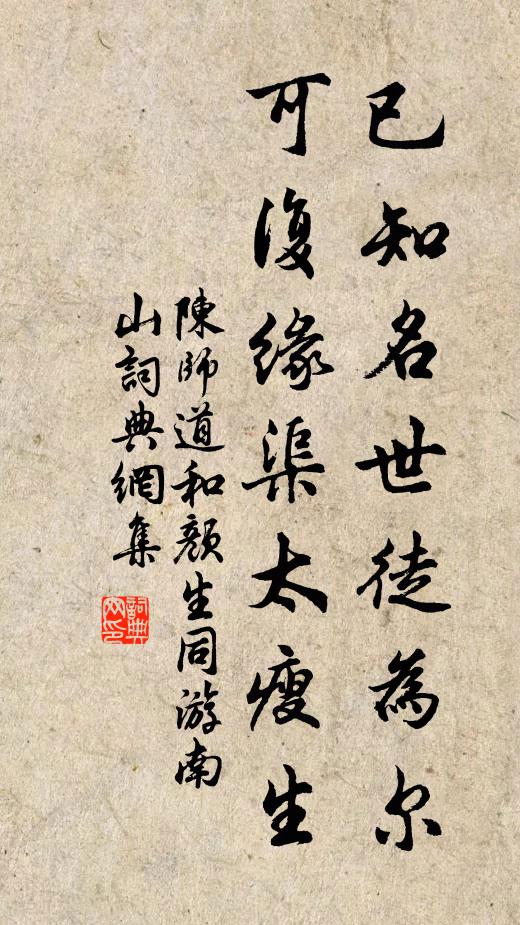 已知名世徒為尔
可復緣渠太瘦生
陳師道和顏生同游南
山詞典網集
詞典网印